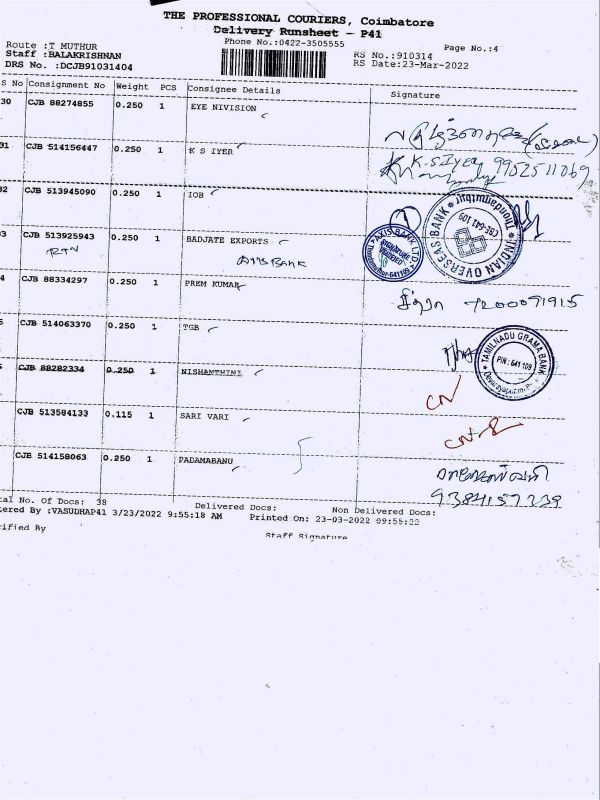 THE PROFESSIONAL COURIERS, Coimbatore
Delivery Runsheet - P41
Phone No.:0422-3505555
Page No.:4
Route :T MUTHUR
Staff :BALAKRISHNAN
DRS No. :DCJB91031404
RS No.:910314
RS Date:23-Mar-2022
S No Consignment No Weight PCS Consignee Details Signature
30 CJB 88274855 0.250 1 EYE NIVISION
31 CJB 514156447 0.250 1 K S IYER
K.S.Iyer 9952511069
32 CJB 513945090 0.250 1 IOB
1
* INDIAN OVERSEAS BANK * Thondamuthur
641 109
3 CJB 513925943 0.250 1 BADJATE EXPORTS
RTN AXIS BANK
AXIS BANK LTD.
641 109
4 CJB 88334297 0.250 1 PREM KUMAR
7200071915
5 CJB 514063370 0.250 1 TGB
* TAMILNADU GRAMA BANK *
PIN : 641 109
CJB 88282334 0.250 1 NISHANTHINI
CN
CJB 513584133 0.115 1 SARI VARI
CJB 514158063 0.250 1 PADAMABANU
9384157239
tal No. Of Docs: 38 Delivered Docs: Non Delivered Docs:
tered By :VASUDHAP41 3/23/2022 9:55:18 AM Printed On: 23-03-2022 09:55:22
rified By
Staff Signature